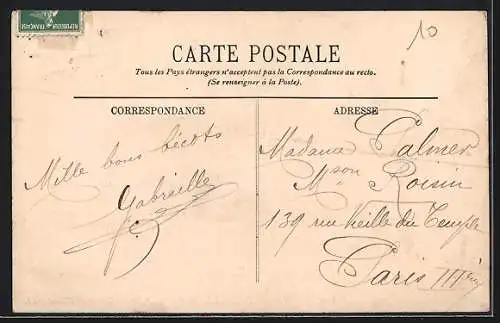 REPUBLIQUE FRANÇAISE
10
CARTE POSTALE
Tous les Pays étrangers n'acceptent pas la Correspondance au recto.
(Se renseigner à la Poste).
CORRESPONDANCE
Mille bons bécots
Gabrielle
ADRESSE
Madame Calmer
Mson Roisin
139 rue Vieille du Temple
Paris IIIème